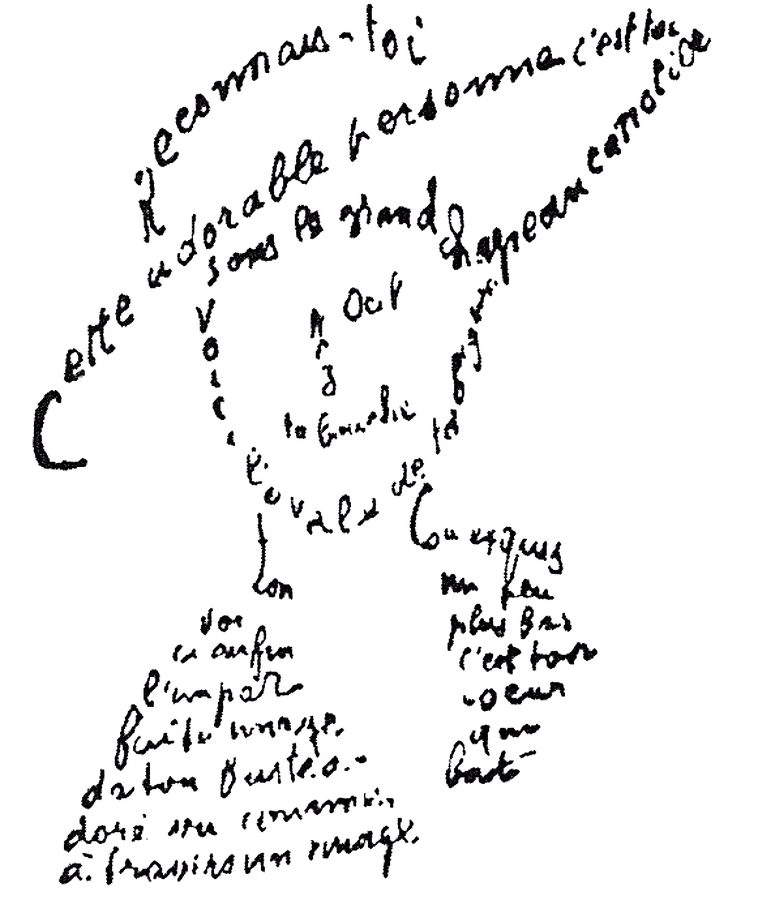 Reconnais-toi
Cette adorable personne c'est toi
sous le grand chapeau canotier
Oeil
Nez
la bouche
Voici l'ovale de ta figure
ton
Cou exquis
Voi
ci enfin
l'impar
faite image
de ton buste a-
doré vu comme
à travers un nuage
un peu
plus bas
c'est ton
coeur
qui
bat